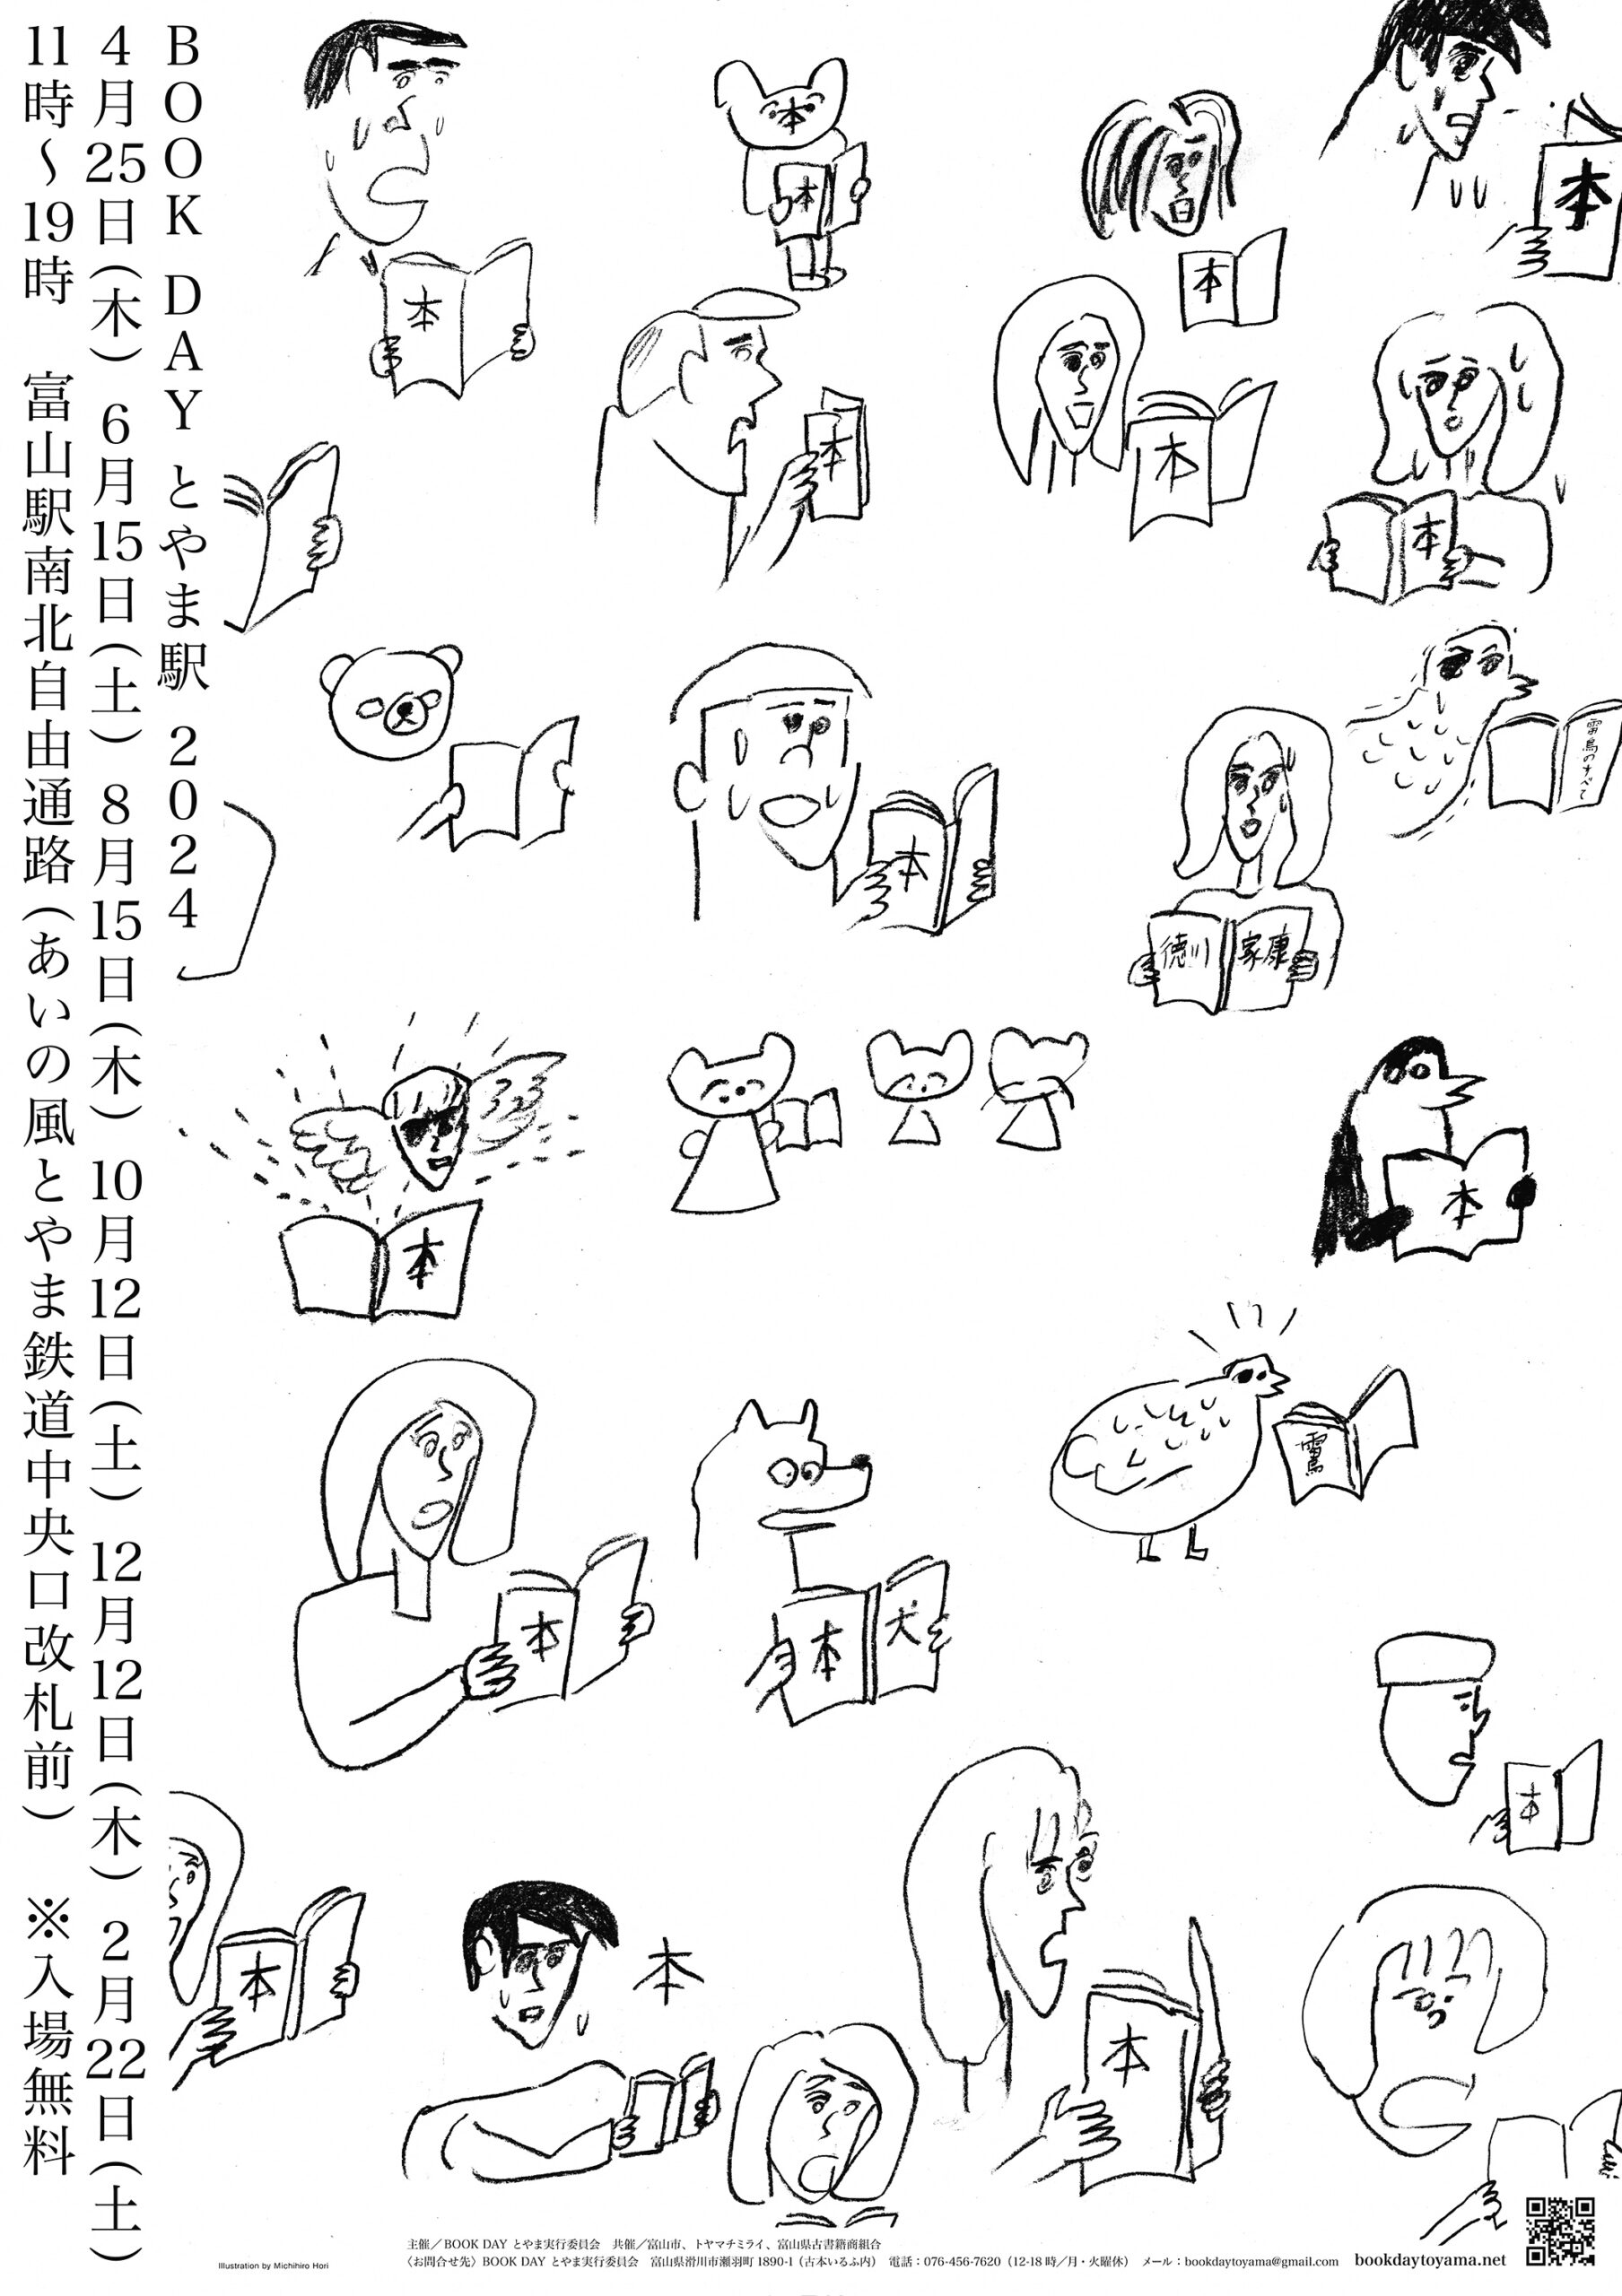 BOOK DAY とやま駅 2024
4月25日(木) 6月15日(土) 8月15日(木) 10月12日(土) 12月12日(木) 2月22日(土)
11時〜19時 富山駅南北自由通路(あいの風とやま鉄道中央口改札前) ※入場無料
本
本
本
日
本
本
本
本
本
本
雷鳥のすべて
本
徳川 家康
本
本
雷鳥
本
本 犬
本
本
本
本
主催／BOOK DAY とやま実行委員会 共催／富山市、トヤマチミライ、富山県古書籍商組合
〈お問合せ先〉BOOK DAY とやま実行委員会 富山県滑川市瀬羽町 1890-1（古本いるふ内） 電話：076-456-7620（12-18 時／月・火曜休） メール：bookdaytoyama@gmail.com
bookdaytoyama.net
Illustration by Michihiro Hori